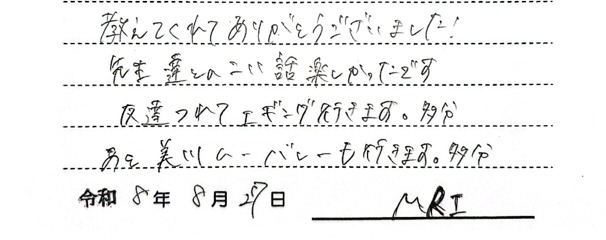 教えてくれてありがとうございました!
先生達との 話楽しかったです
友達つれてエギング行きます。多分
あと美川 ーバレーも行きます。多分
令和8年8月27日 MRI